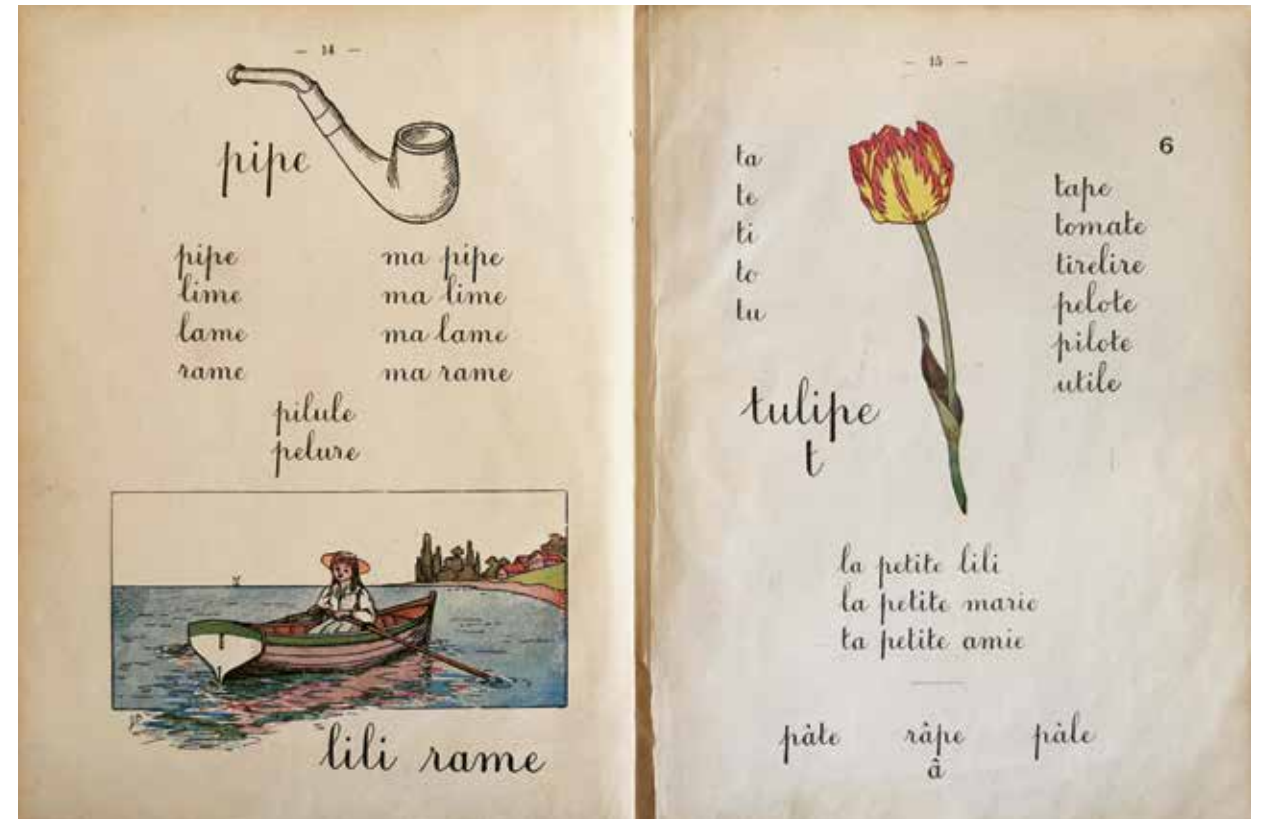 — 14 —
pipe
pipe ma pipe
lime ma lime
lame ma lame
rame ma rame
pilule
pelure
lili rame
— 15 —
6
ta
te
ti
to
tu
tape
tomate
tirelire
pelote
pilote
utile
tulipe
t
la petite lili
la petite marie
ta petite amie
pâte râpe pâle
â